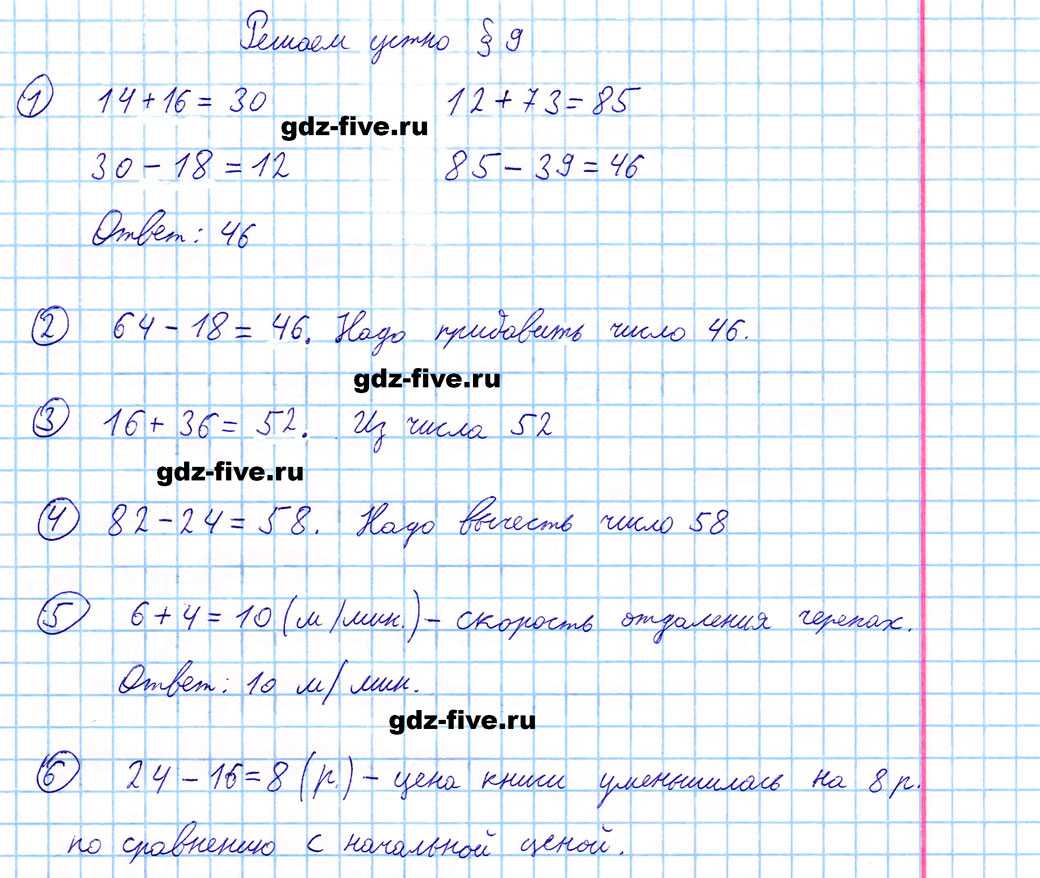 Решаем устно § 9
1 14+16=30 12+73=85
gdz-five.ru
30-18=12 85-39=46
Ответ: 46
2 64-18=46. Надо прибавить число 46.
gdz-five.ru
3 16+36=52. Из числа 52
gdz-five.ru
4 82-24=58. Надо вычесть число 58
5 6+4=10 (м/мин.) - скорость отдаления черепах.
Ответ: 10 м/мин.
gdz-five.ru
6 24-16=8 (р.) - цена книги уменьшилась на 8 р.
по сравнению с начальной ценой.